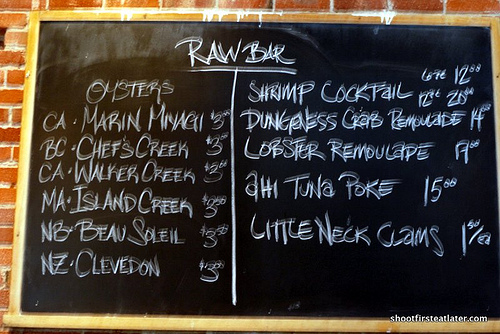 RAW BAR
OYSTERS
CA • MARIN MIYAGI $3
BC • CHEF'S CREEK $3
CA • WALKER CREEK $3
MA • ISLAND CREEK
NB • BEAU SOLEIL
NZ • CLEVEDON $3
SHRIMP COCKTAIL 12
DUNGENESS CRAB REMOULADE 14
LOBSTER REMOULADE
AHI TUNA POKE 15⁰⁰
LITTLE NECK CLAMS
shootfirsteatlater.com